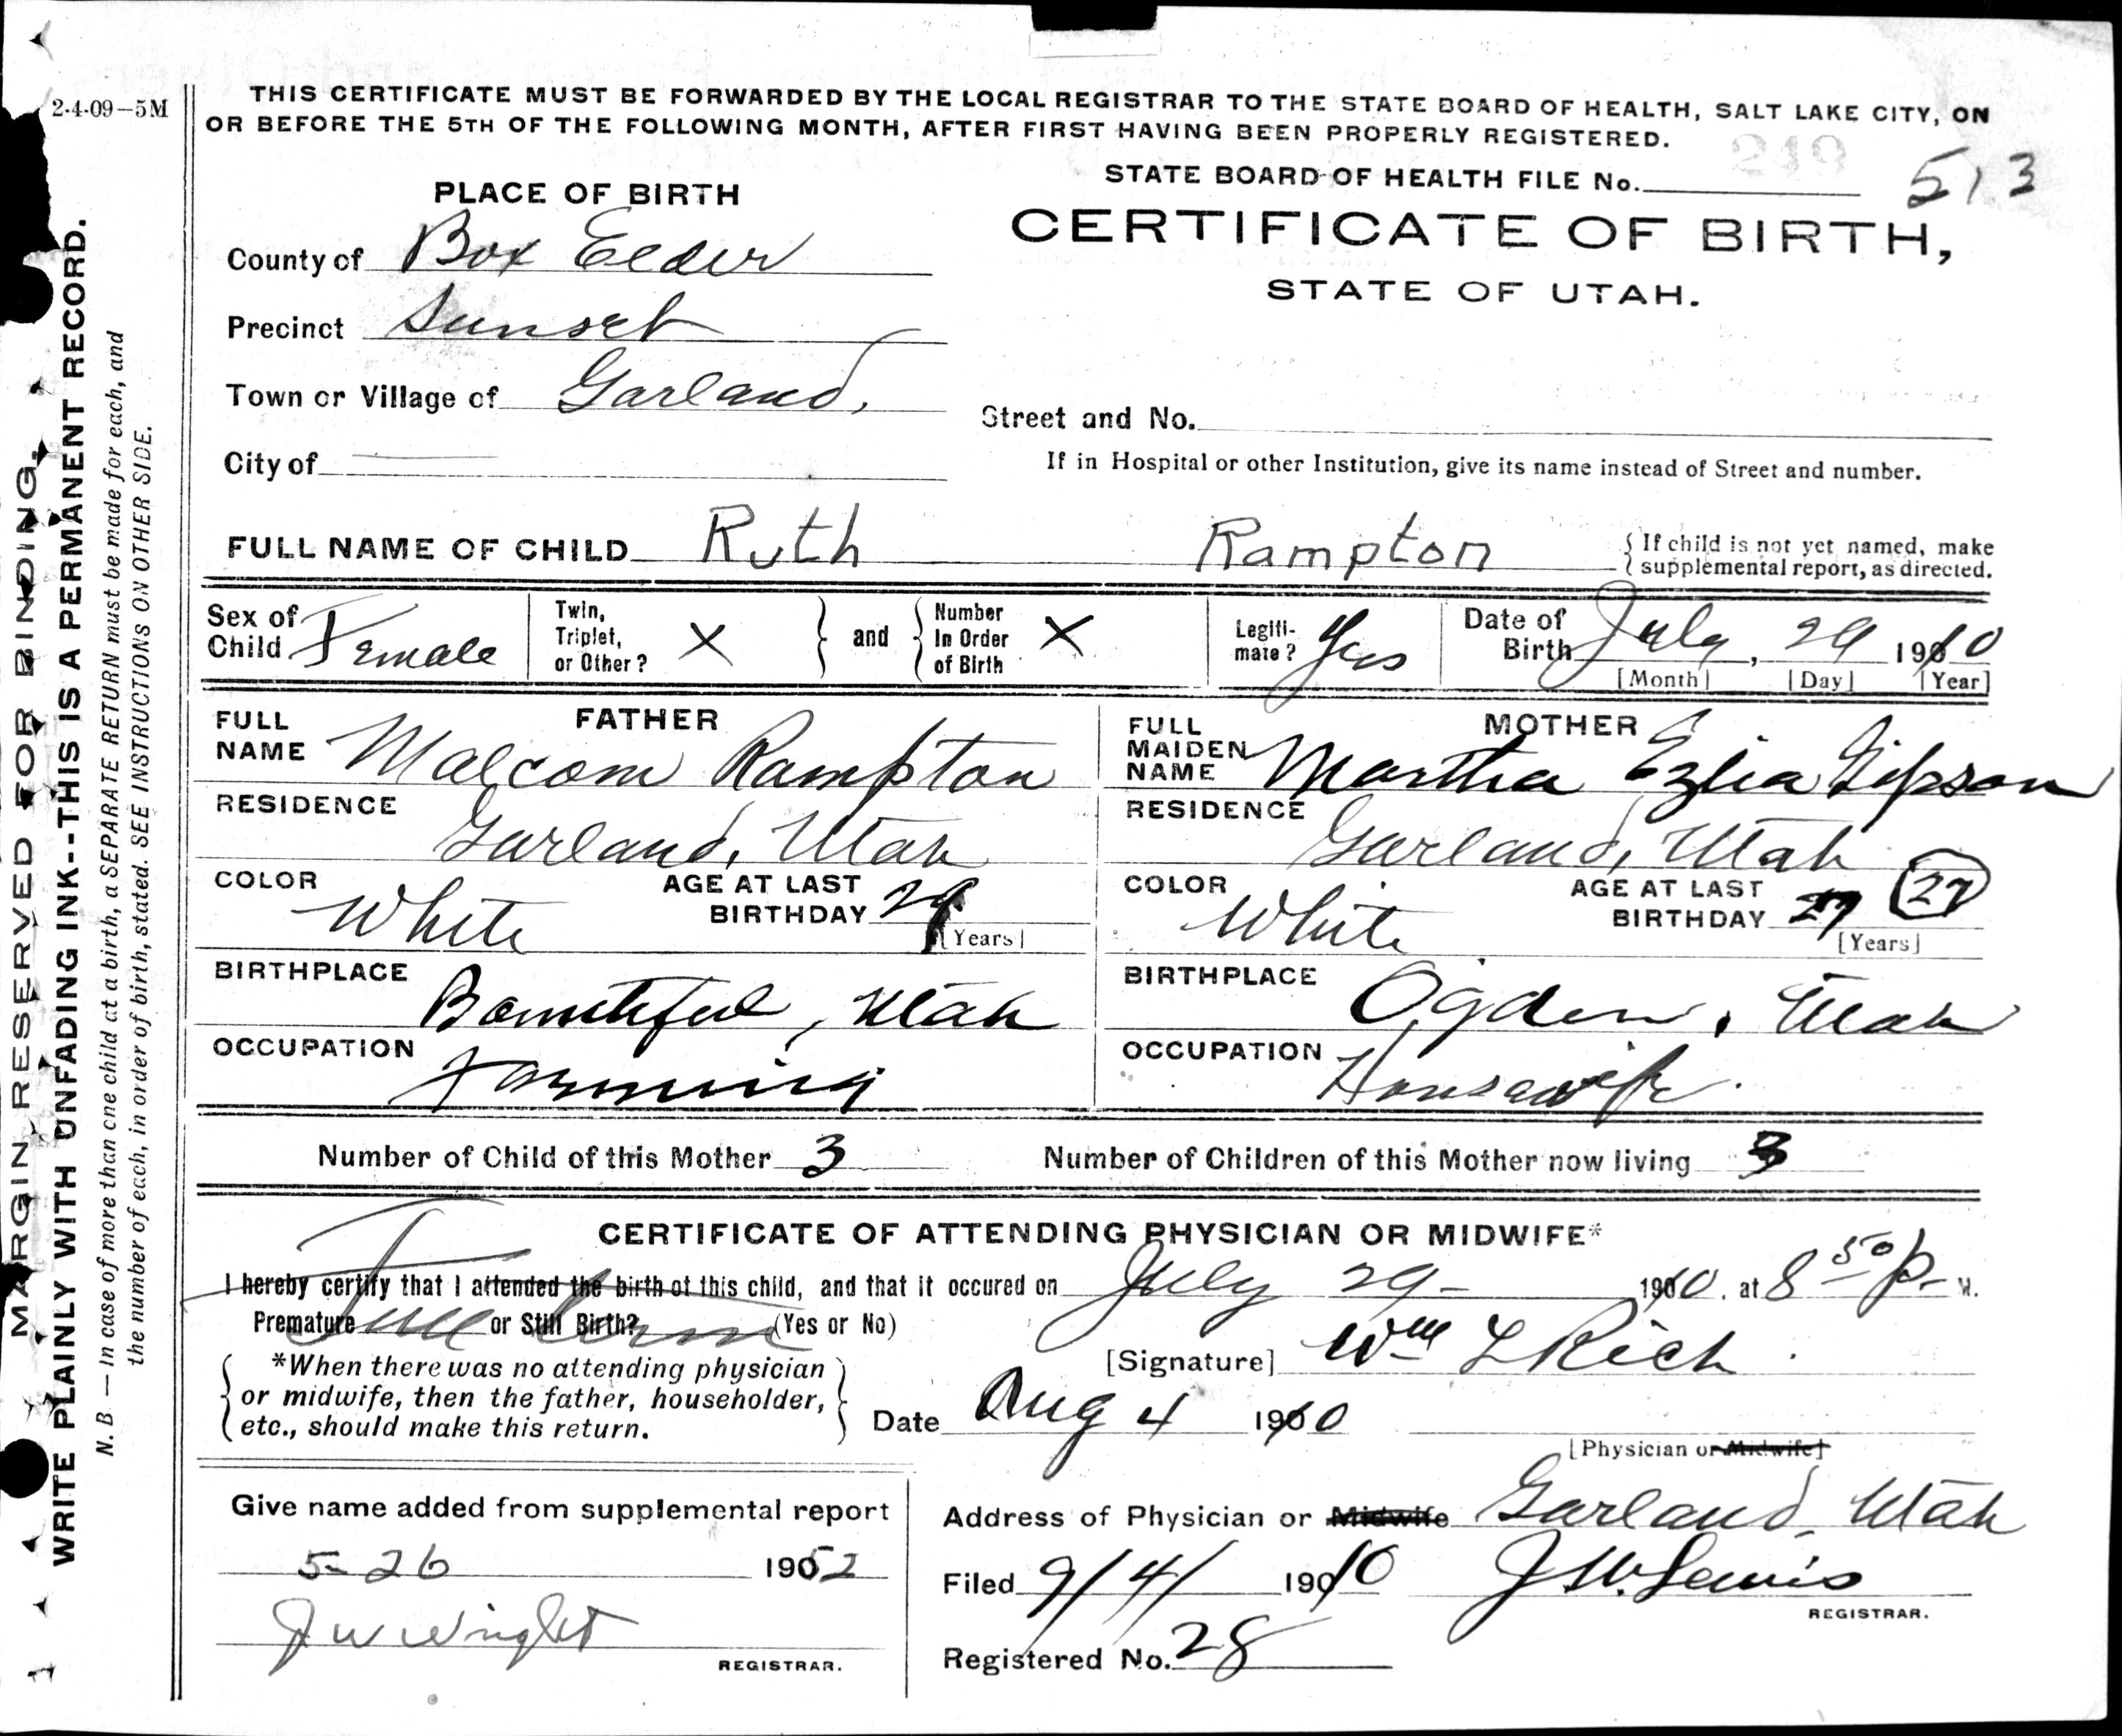 2-4-09—5M
THIS CERTIFICATE MUST BE FORWARDED BY THE LOCAL REGISTRAR TO THE STATE BOARD OF HEALTH, SALT LAKE CITY, ON
OR BEFORE THE 5TH OF THE FOLLOWING MONTH, AFTER FIRST HAVING BEEN PROPERLY REGISTERED.
249
STATE BOARD OF HEALTH FILE No. 513
CERTIFICATE OF BIRTH,
STATE OF UTAH.
PLACE OF BIRTH
County of Box Elder
Precinct Sunset
Town or Village of Garland,
City of
Street and No.
If in Hospital or other Institution, give its name instead of Street and number.
FULL NAME OF CHILD Ruth Rampton
{ If child is not yet named, make
supplemental report, as directed.
Sex of Child Female
Twin, Triplet, or Other? X
} and {
Number In Order of Birth X
Legiti- mate? Yes
Date of Birth July, 29 1910
[Month] [Day] [Year]
FATHER
FULL NAME Malcom Rampton
RESIDENCE
Garland, Utah
COLOR White
AGE AT LAST BIRTHDAY 29 [Years]
BIRTHPLACE
Bountiful, Utah
OCCUPATION
Farming
MOTHER
FULL MAIDEN NAME Martha Ezlia Gipson
RESIDENCE
Garland, Utah
COLOR White
AGE AT LAST BIRTHDAY 27 27 [Years]
BIRTHPLACE
Ogden, Utah
OCCUPATION
Housewife.
Number of Child of this Mother 3
Number of Children of this Mother now living 3
CERTIFICATE OF ATTENDING PHYSICIAN OR MIDWIFE*
I hereby certify that I attended the birth of this child, and that it occured on July 29 - 1910. at 8 50 P. M.
Premature or Still Birth? (Yes or No)
Full term
*When there was no attending physician
or midwife, then the father, householder,
etc., should make this return.
[Signature] Wm L Rich.
Date Aug 4 1910
[Physician or Midwife]
Give name added from supplemental report
5-26 1952
J W Wright
REGISTRAR.
Address of Physician or Midwife Garland, Utah
Filed 9/4/ 1910 J. W. Lewis
REGISTRAR.
Registered No. 28
MARGIN RESERVED FOR BINDING.
WRITE PLAINLY WITH UNFADING INK--THIS IS A PERMANENT RECORD.
N. B — In case of more than one child at a birth, a SEPARATE RETURN must be made for each, and
the number of each, in order of birth, stated. SEE INSTRUCTIONS ON OTHER SIDE.